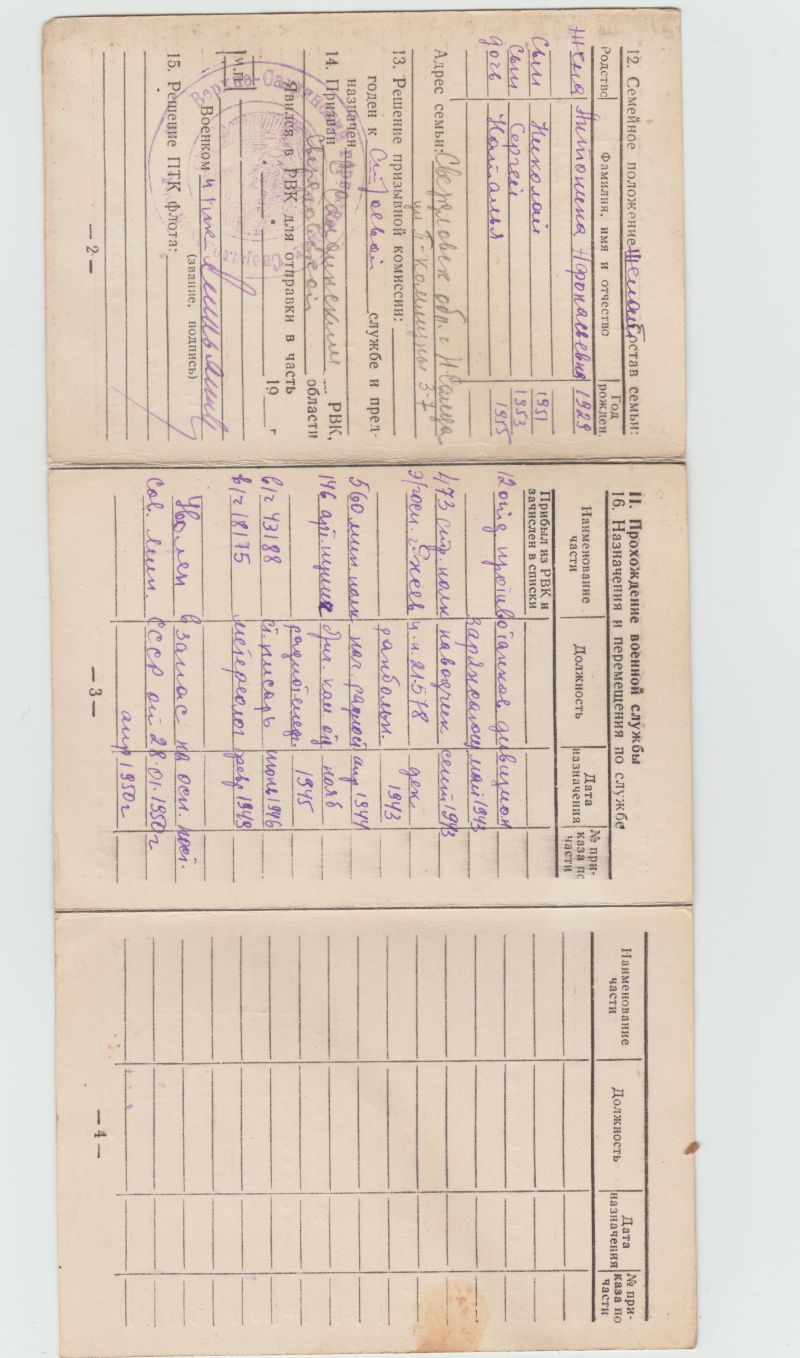 12. Семейное положение женат Состав семьи:
Родство Фамилия, имя и отчество Год рожден.
Жена Антонина Афонасьевна 1929
Сын Николай 1951
Сын Сергей 1953
дочь Наталья 1955
Адрес семьи: Свердловск обл. г Н Салда
ул П-коммуны 3-7
13. Решение призывной комиссии:
годен к строевой службе и пред-
назначен
14. Призван В Салдинским РВК,
Свердловской области
Явился в РВК для отправки в часть
19 г
М.П.
Военком
(звание, подпись)
15. Решение ПТК флота:
— 2 —
II. Прохождение военной службы
16. Назначения и перемещения по службе
Наименование части Должность Дата назначения № при-каза по части
Прибыл из РВК и
зачислен в списки
12 отд противотанков. дивизион
заряжающ май 1943
473 стр. полк наводчик сент 1943
Э/госп. г. ц. п. 21578 дек
ранбольн. 1943
560 мин полк нач. радиост апр 1944
146 арт. бриг. ком. от нояб
радиотелегр. 1945
в/ч 43188 ст. писарь июль 1946
в/ч 18175 метеоролог февр 1949
Уволен в запас на осн. пост.
Сов. мин. СССР от 28.01.1950г
апр 1950г
— 3 —
Наименование части Должность Дата назначения № при-каза по части
— 4 —